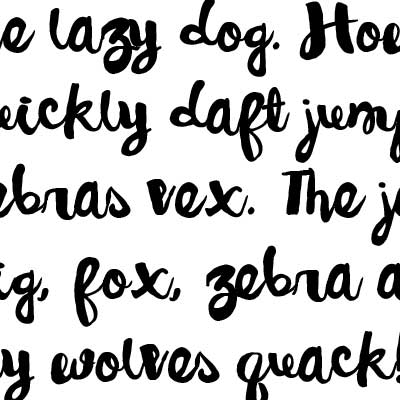 e lazy dog. How
uickly daft jump
ebras vex. The j
ig, fox, zebra a
y wolves quack!